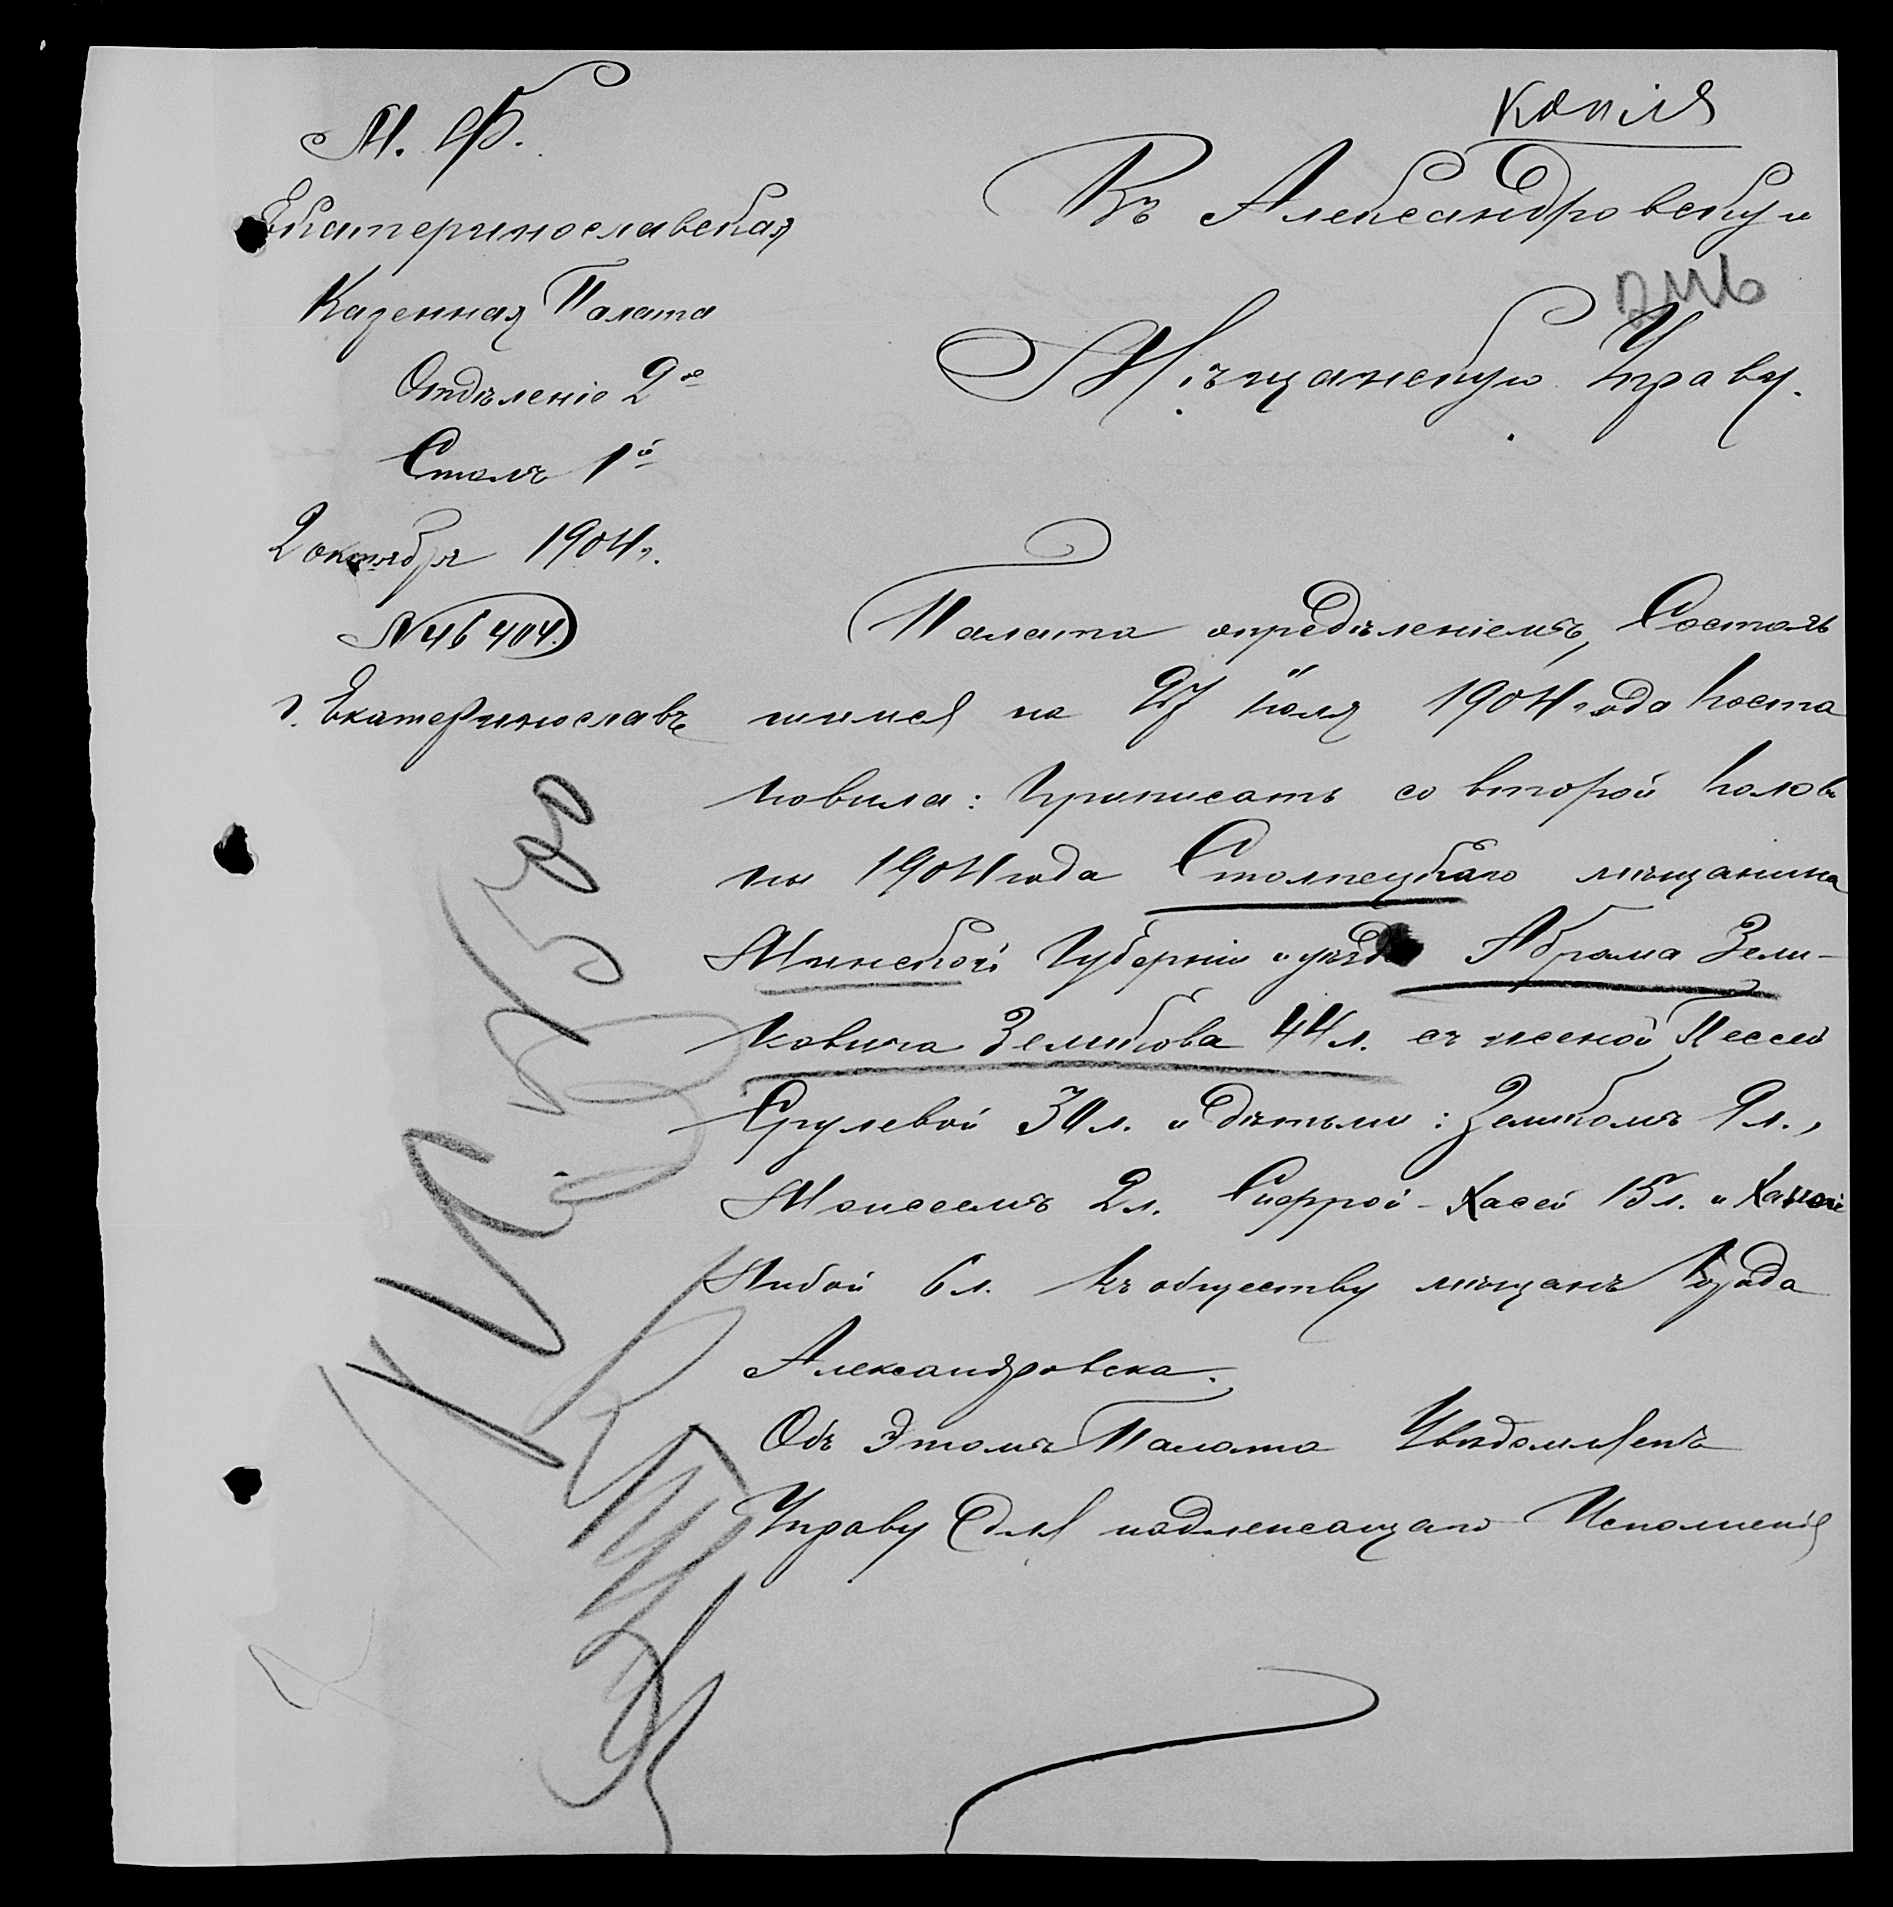 Копія
М. Ф.
Екатеринославская
Казенная Палата
Отдѣленіе 2ое
Столъ 1й
2 октября 1904 г.
№ 46404.
г. Екатеринославъ
Въ Александровскую
Мѣщанскую Управу.
Палата опредѣленіемъ, Состояв
шимся на 27 Іюля 1904 года Поста
новила: Приписать со второй Полов
ны 1904 года Столпецкаго мѣщанина
Минской Губерніи и уѣзда Абрама Зели-
ковича Зеликова 44 л. съ женой Песей
Срулевой 34 л. и дѣтьми: Зеликомъ 9 л.,
Моисеемъ 2 л. Сифрой-Хасей 15 л. и Ханой
Либой 6 л. къ обществу мѣщанъ Города
Александровска.
Объ Этомъ Палата Увѣдомляетъ
Управу для надлежащаго Исполненія